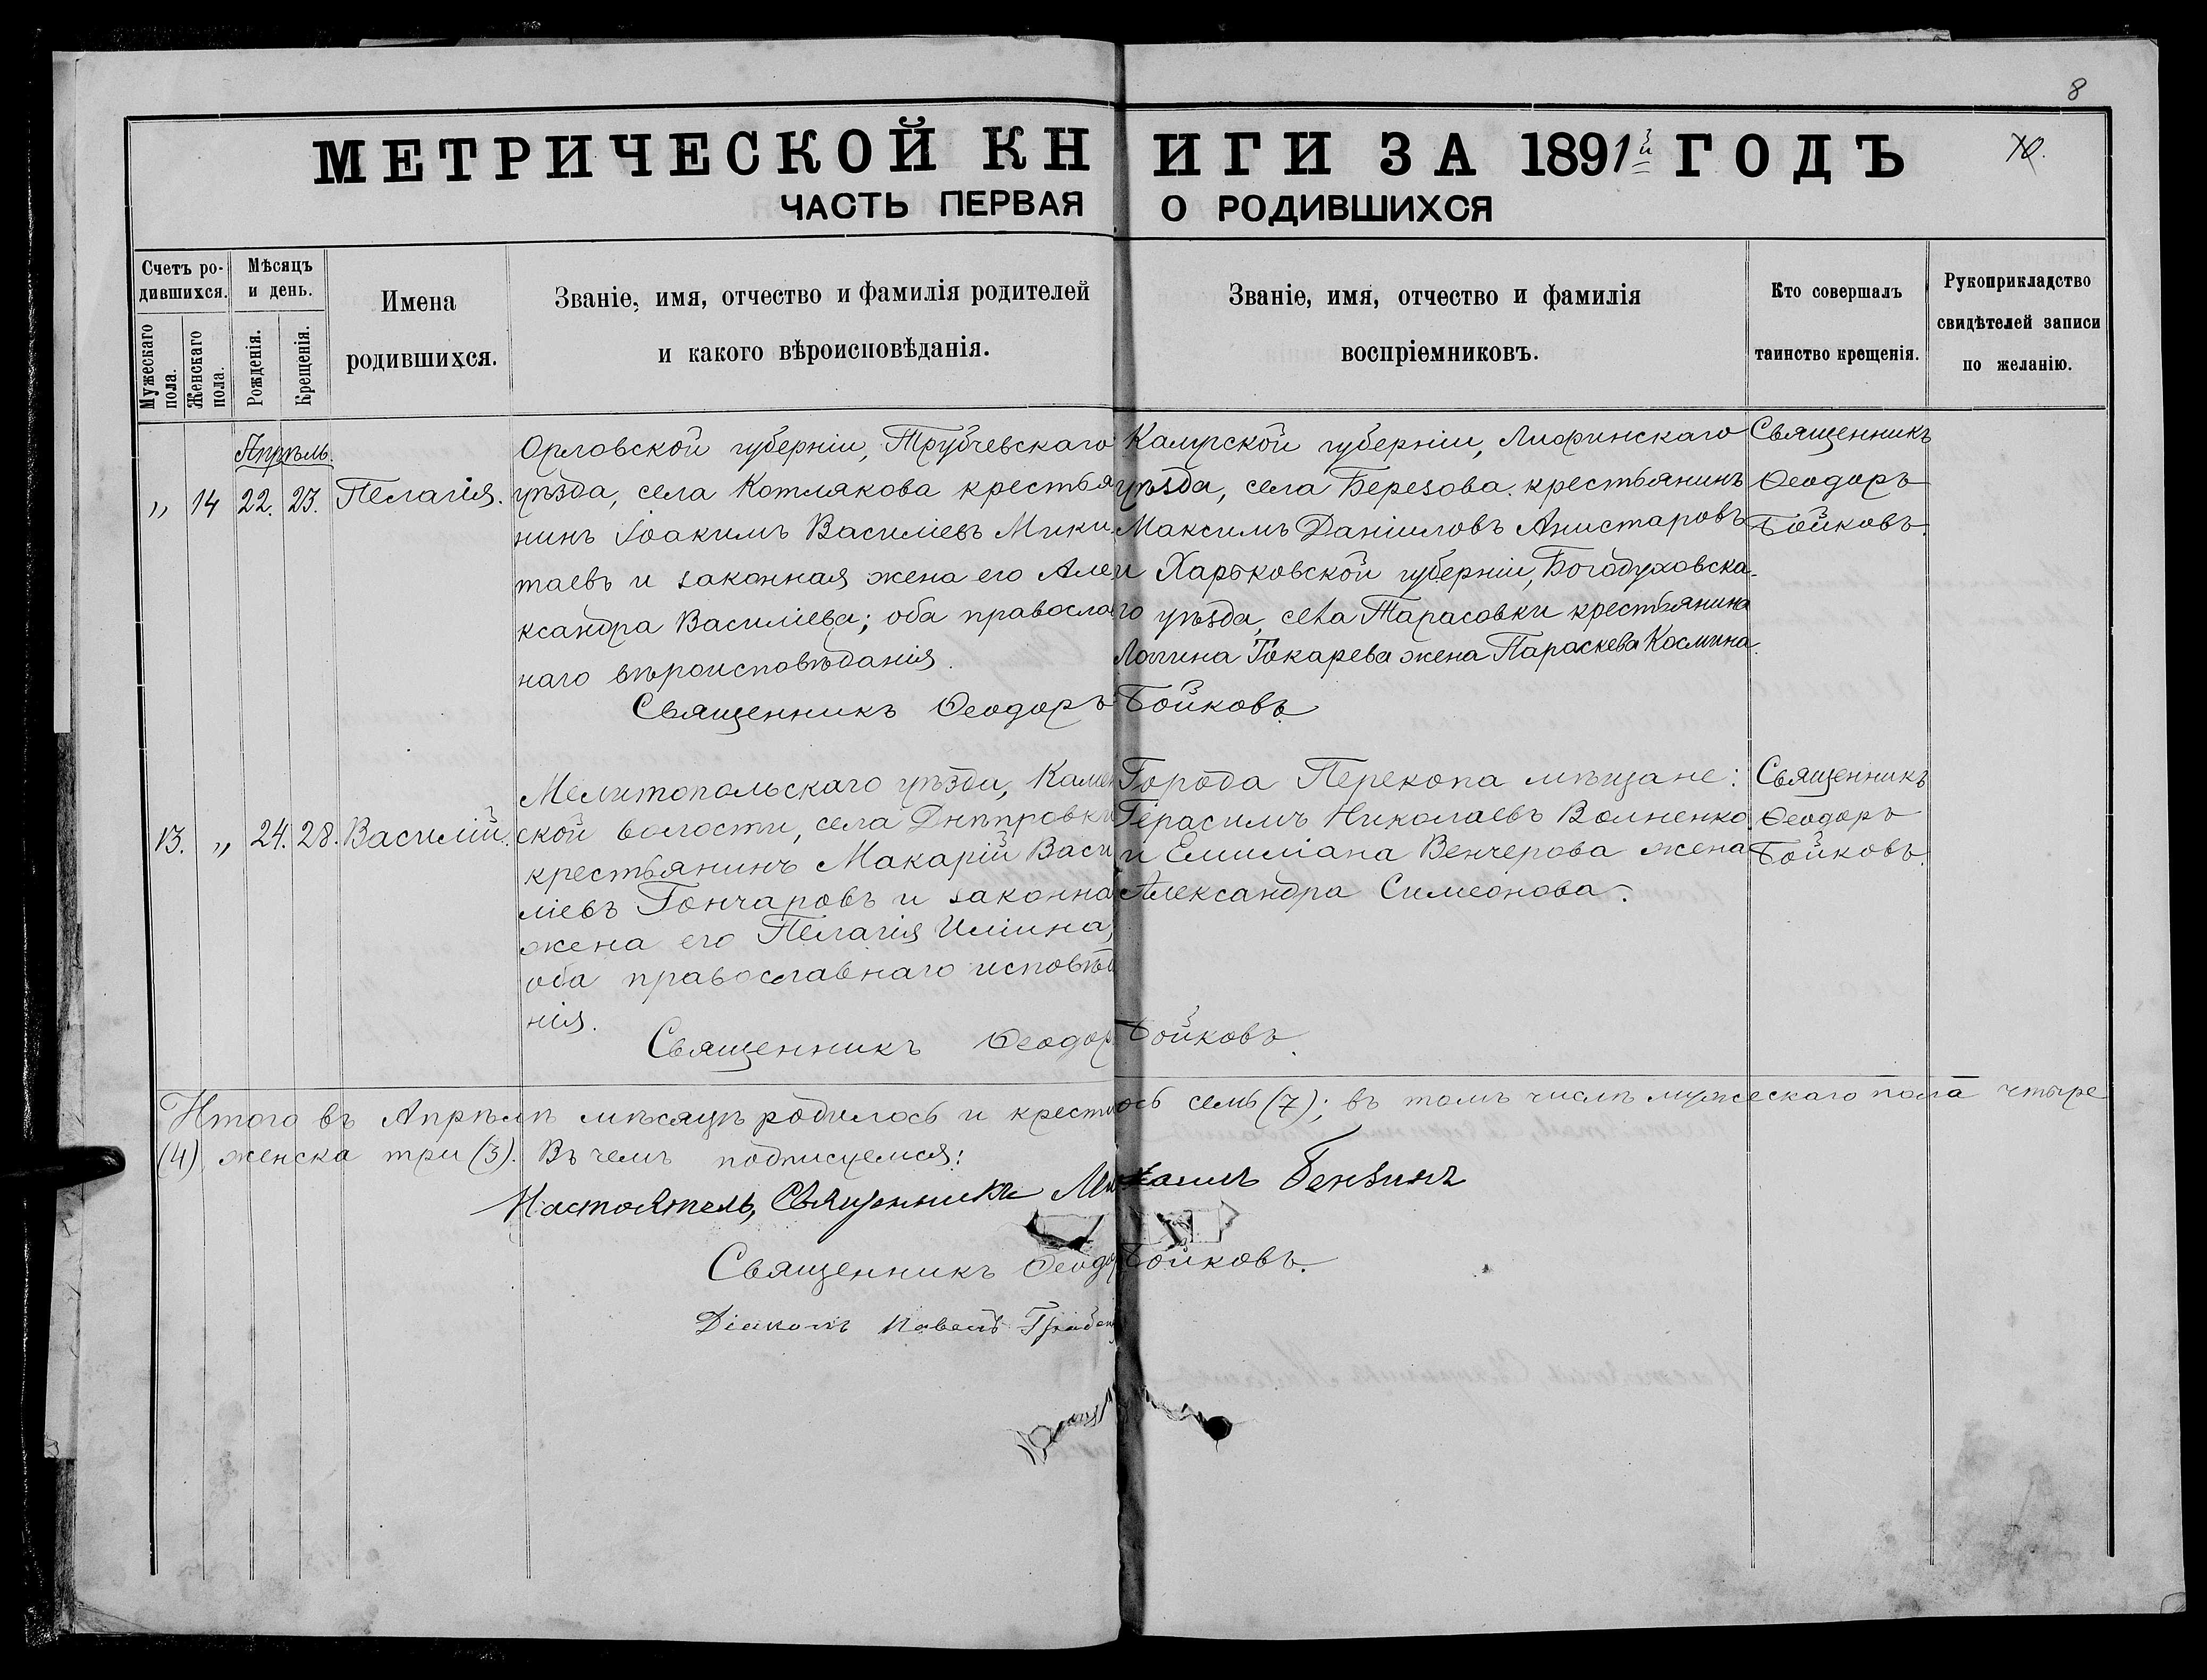 8
МЕТРИЧЕСКОЙ КНИГИ ЗА 1891й ГОДЪ
10.
ЧАСТЬ ПЕРВАЯ О РОДИВШИХСЯ
Счетъ ро-
дившихся.
Мужескаго пола.
Женскаго пола.
Мѣсяцъ
и день.
Рожденія.
Крещенія.
Имена
родившихся.
Званіе, имя, отчество и фамилія родителей
и какого вѣроисповѣданія.
Званіе, имя, отчество и фамилія
воспріемниковъ.
Кто совершалъ
таинство крещенія.
Рукоприкладство
свидѣтелей записи
по желанію.
Апрѣль.
„ 14 22. 23. Пелагія.
Орловской губерніи, Трубчевскаго
уѣзда, села Котлякова крестья
нинъ Іоакимъ Василіевъ Мики
таевъ и законная жена его Але
ксандра Василіева; оба православ
наго вѣроисповѣданія.
Калужской губерніи, Лифинскаго
уѣзда, села Березова крестьянинъ
Максимъ Даніиловъ Анистаровъ
и Харьковской губерніи, Богодуховска-
го уѣзда, села Тарасовки крестьянина
Логина Токарева жена Параскева Космина.
Священникъ
Ѳеодоръ
Бойковъ.
Священникъ Ѳеодоръ Бойковъ
13. „ 24. 28. Василій.
Мелитопольскаго уѣзда, Камен
ской волости, села Днѣпровки
крестьянинъ Макарій Васи
ліевъ Гончаровъ и законна
жена его Пелагія Иліина,
оба православнаго исповѣда
нія.
Города Перекопа мѣщане:
Герасимъ Николаевъ Волненко
и Емиліана Венчерова жена
Александра Симеонова.
Священникъ
Ѳеодоръ
Бойковъ.
Священникъ Ѳеодоръ Бойковъ.
Итого въ Апрѣлѣ мѣсяцѣ родилось и крестилось семь (7); въ томъ числѣ мужескаго пола четыре
(4) женска три (3). Въ чемъ подписуемся:
Настоятель, Священникъ Михаилъ Бензинъ
Священникъ Ѳеодоръ Бойковъ.
Діаконъ Павелъ